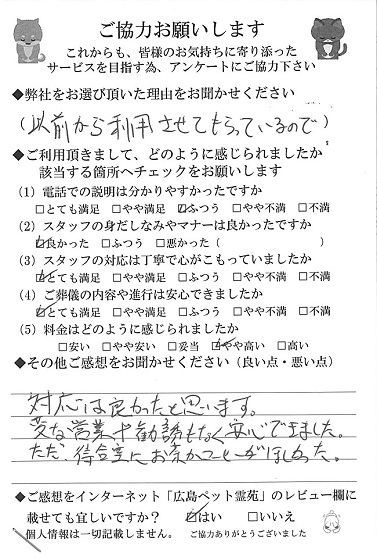 ご協力お願いします
これからも、皆様のお気持ちに寄り添った
サービスを目指す為、アンケートにご協力下さい
◆弊社をお選び頂いた理由をお聞かせください
(以前から利用させてもらっているので)
◆ご利用頂きまして、どのように感じられましたか
該当する箇所へチェックをお願いします
(1) 電話での説明は分かりやすかったですか
□とても満足 □やや満足 ☑ふつう □やや不満 □不満
(2) スタッフの身だしなみやマナーは良かったですか
☑良かった □ふつう □悪かった ( )
(3) スタッフの対応は丁寧で心がこもっていましたか
☑とても満足 □やや満足 □ふつう □やや不満 □不満
(4) ご葬儀の内容や進行は安心できましたか
☑とても満足 □やや満足 □ふつう □やや不満 □不満
(5) 料金はどのように感じられましたか
□安い □やや安い □妥当 ☑やや高い □高い
◆その他ご感想をお聞かせください (良い点・悪い点)
対応は良かったと思います。
変な営業や勧誘もなく安心できました。
ただ、待合室にお茶かコーヒーがほしかった。
◆ご感想をインターネット「広島ペット霊苑」のレビュー欄に
載せても宜しいですか? ☑はい □いいえ
個人情報は一切記載しません。 ご協力ありがとうございました